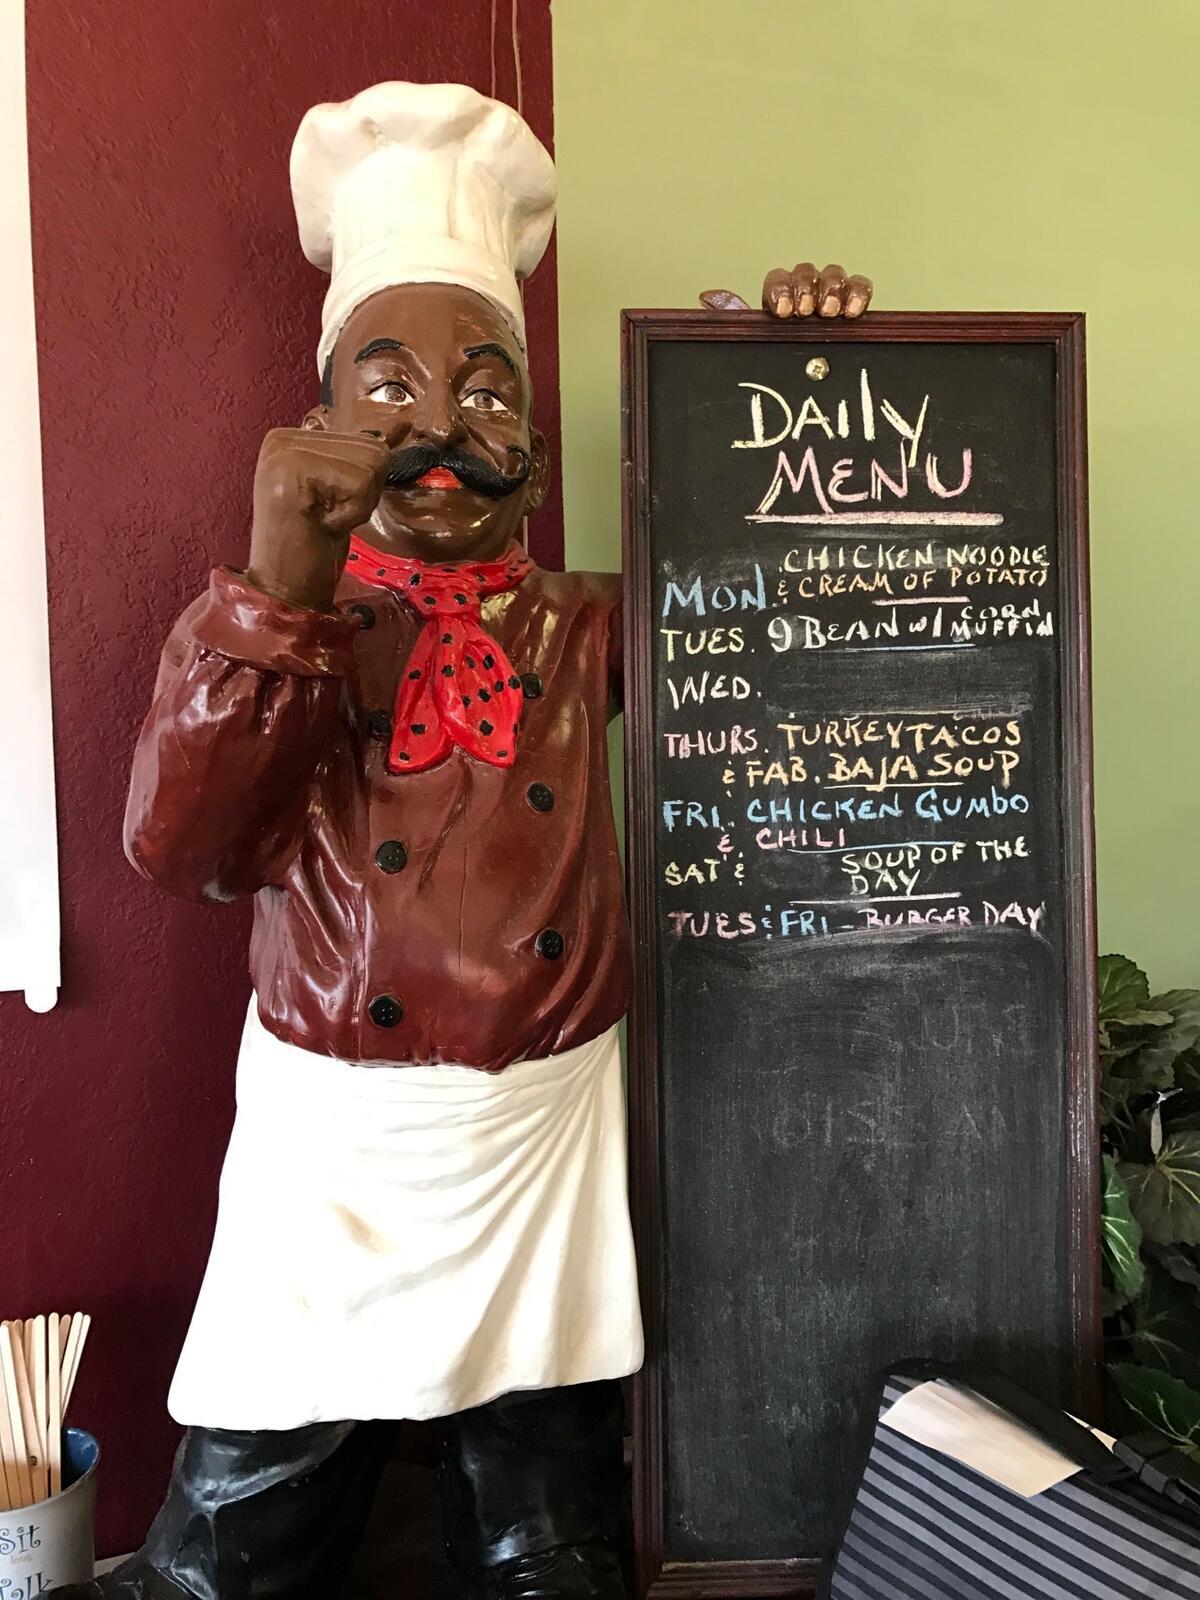 DAily
MENU
CHICKEN NOODLE
MON. & CREAM OF POTATO
TUES. 9 BEAN w/ CORN MUFFIN
WED.
THURS. TURKEY TACOS
& FAB. BAJA SOUP
FRI. CHICKEN GUMBO
& CHILI
SAT & SOUP OF THE
DAY
TUES & FRI - BURGER DAY
Sit
Talk